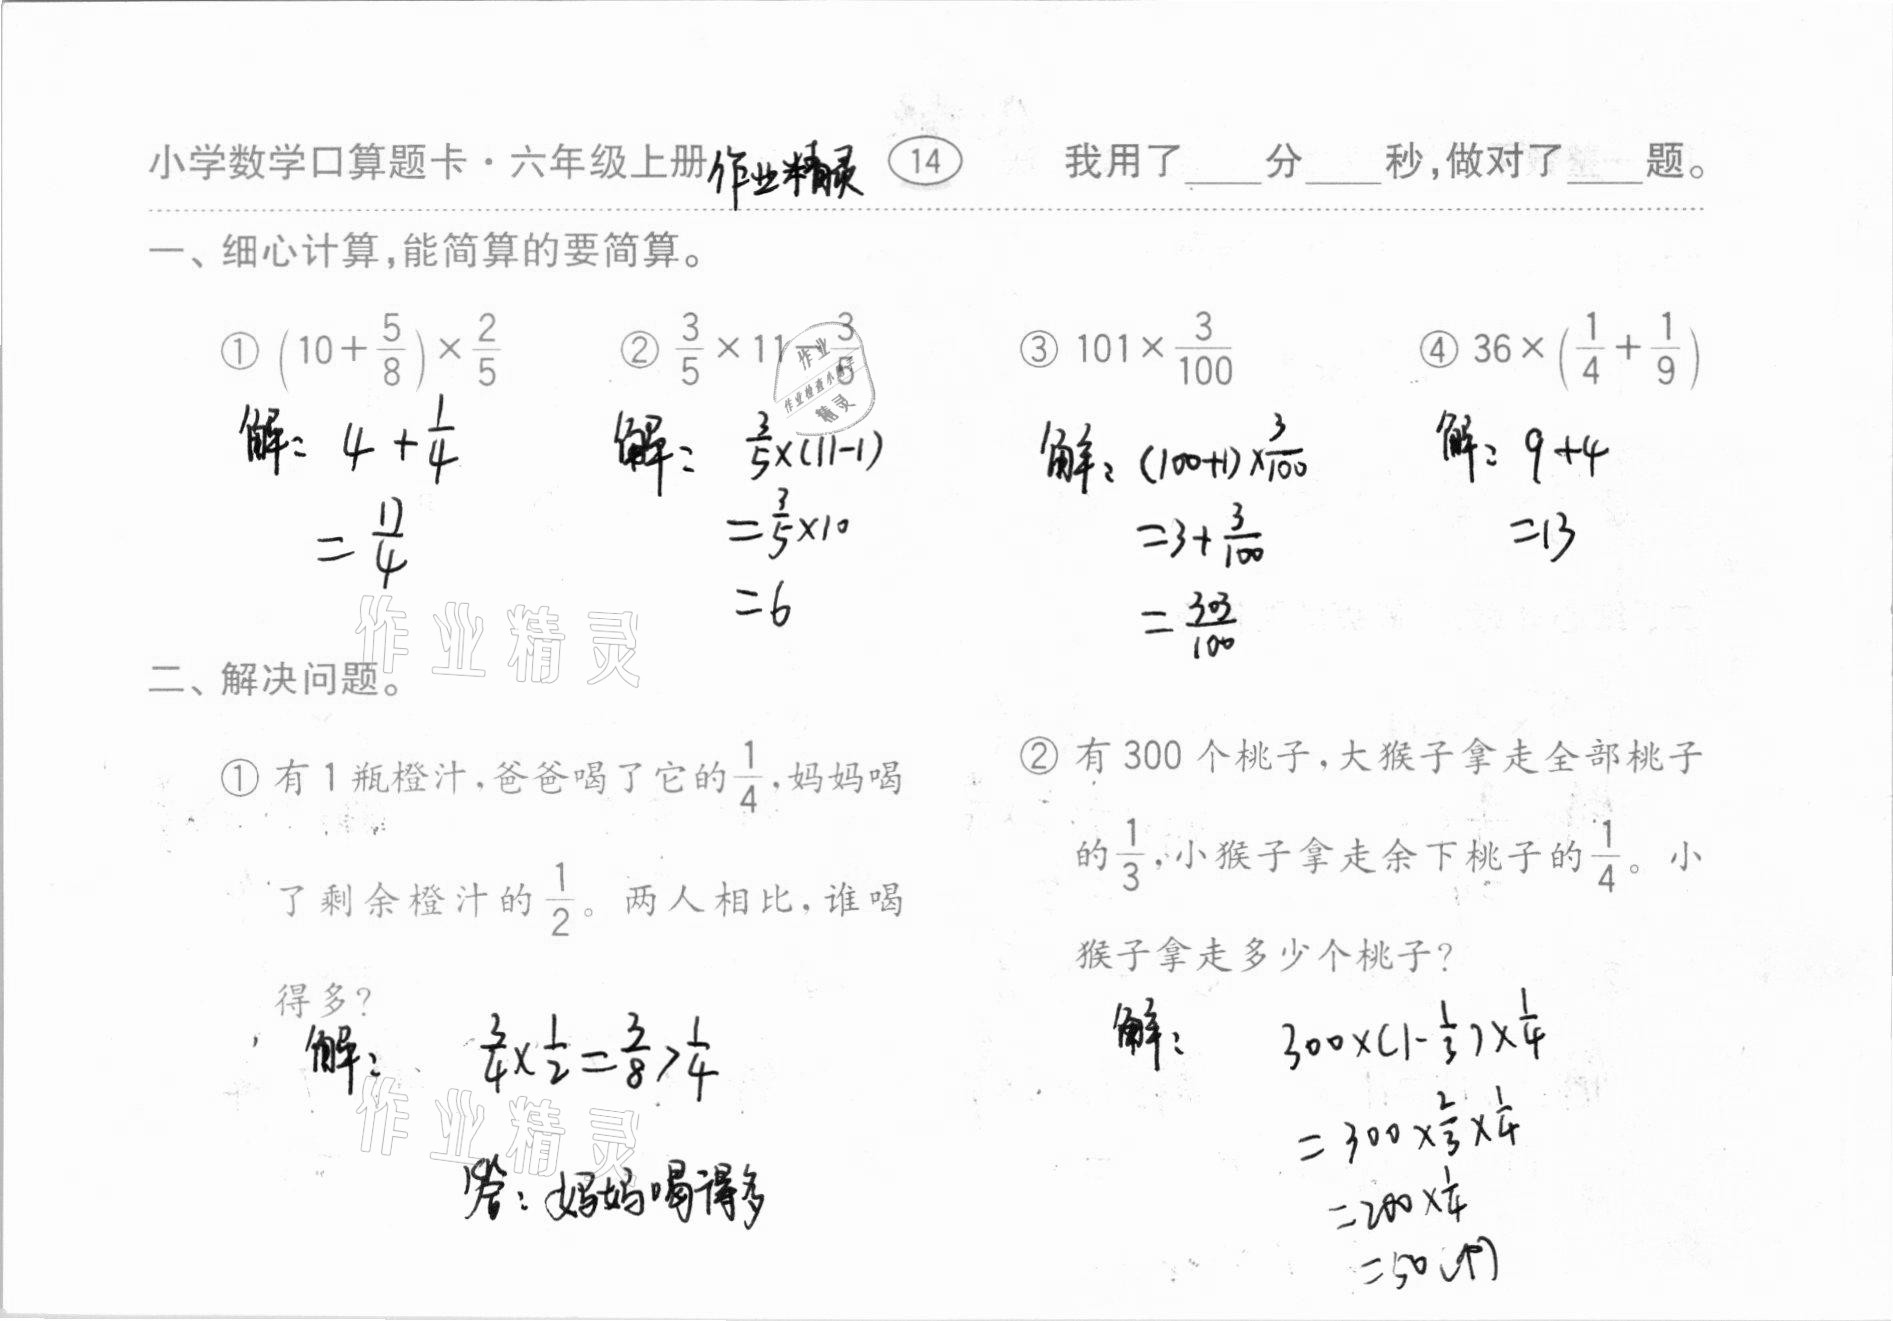 小学数学口算题卡·六年级上册 作业精灵 14 我用了____分____秒,做对了____题。
一、细心计算,能简算的要简算。
① (10+5/8)×2/5 ② 3/5×11-3/5 ③ 101×3/100 ④ 36×(1/4+1/9)
作业
作业检查小帮手
精灵
解: 4+1/4 解: 3/5×(11-1) 解: (100+1)×3/100 解: 9+4
=17/4 =3/5×10 =3+3/100 =13
=6 =303/100
作业精灵
二、解决问题。
① 有1瓶橙汁,爸爸喝了它的1/4,妈妈喝
了剩余橙汁的1/2。两人相比,谁喝
得多?
解: 3/4×1/2=3/8>1/4
作业精灵
答:妈妈喝得多
② 有300个桃子,大猴子拿走全部桃子
的1/3,小猴子拿走余下桃子的1/4。小
猴子拿走多少个桃子?
解: 300×(1-1/3)×1/4
=300×2/3×1/4
=200×1/4
=50(个)